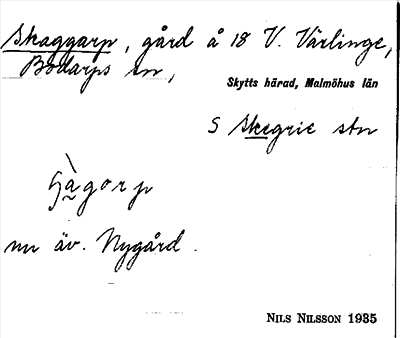 Skaggarp, gård å 18 V. Värlinge,
Bodarps sn,
Skytts härad, Malmöhus län
S Skegrie stn
nu äv. Nygård.
NILS NILSSON 1935